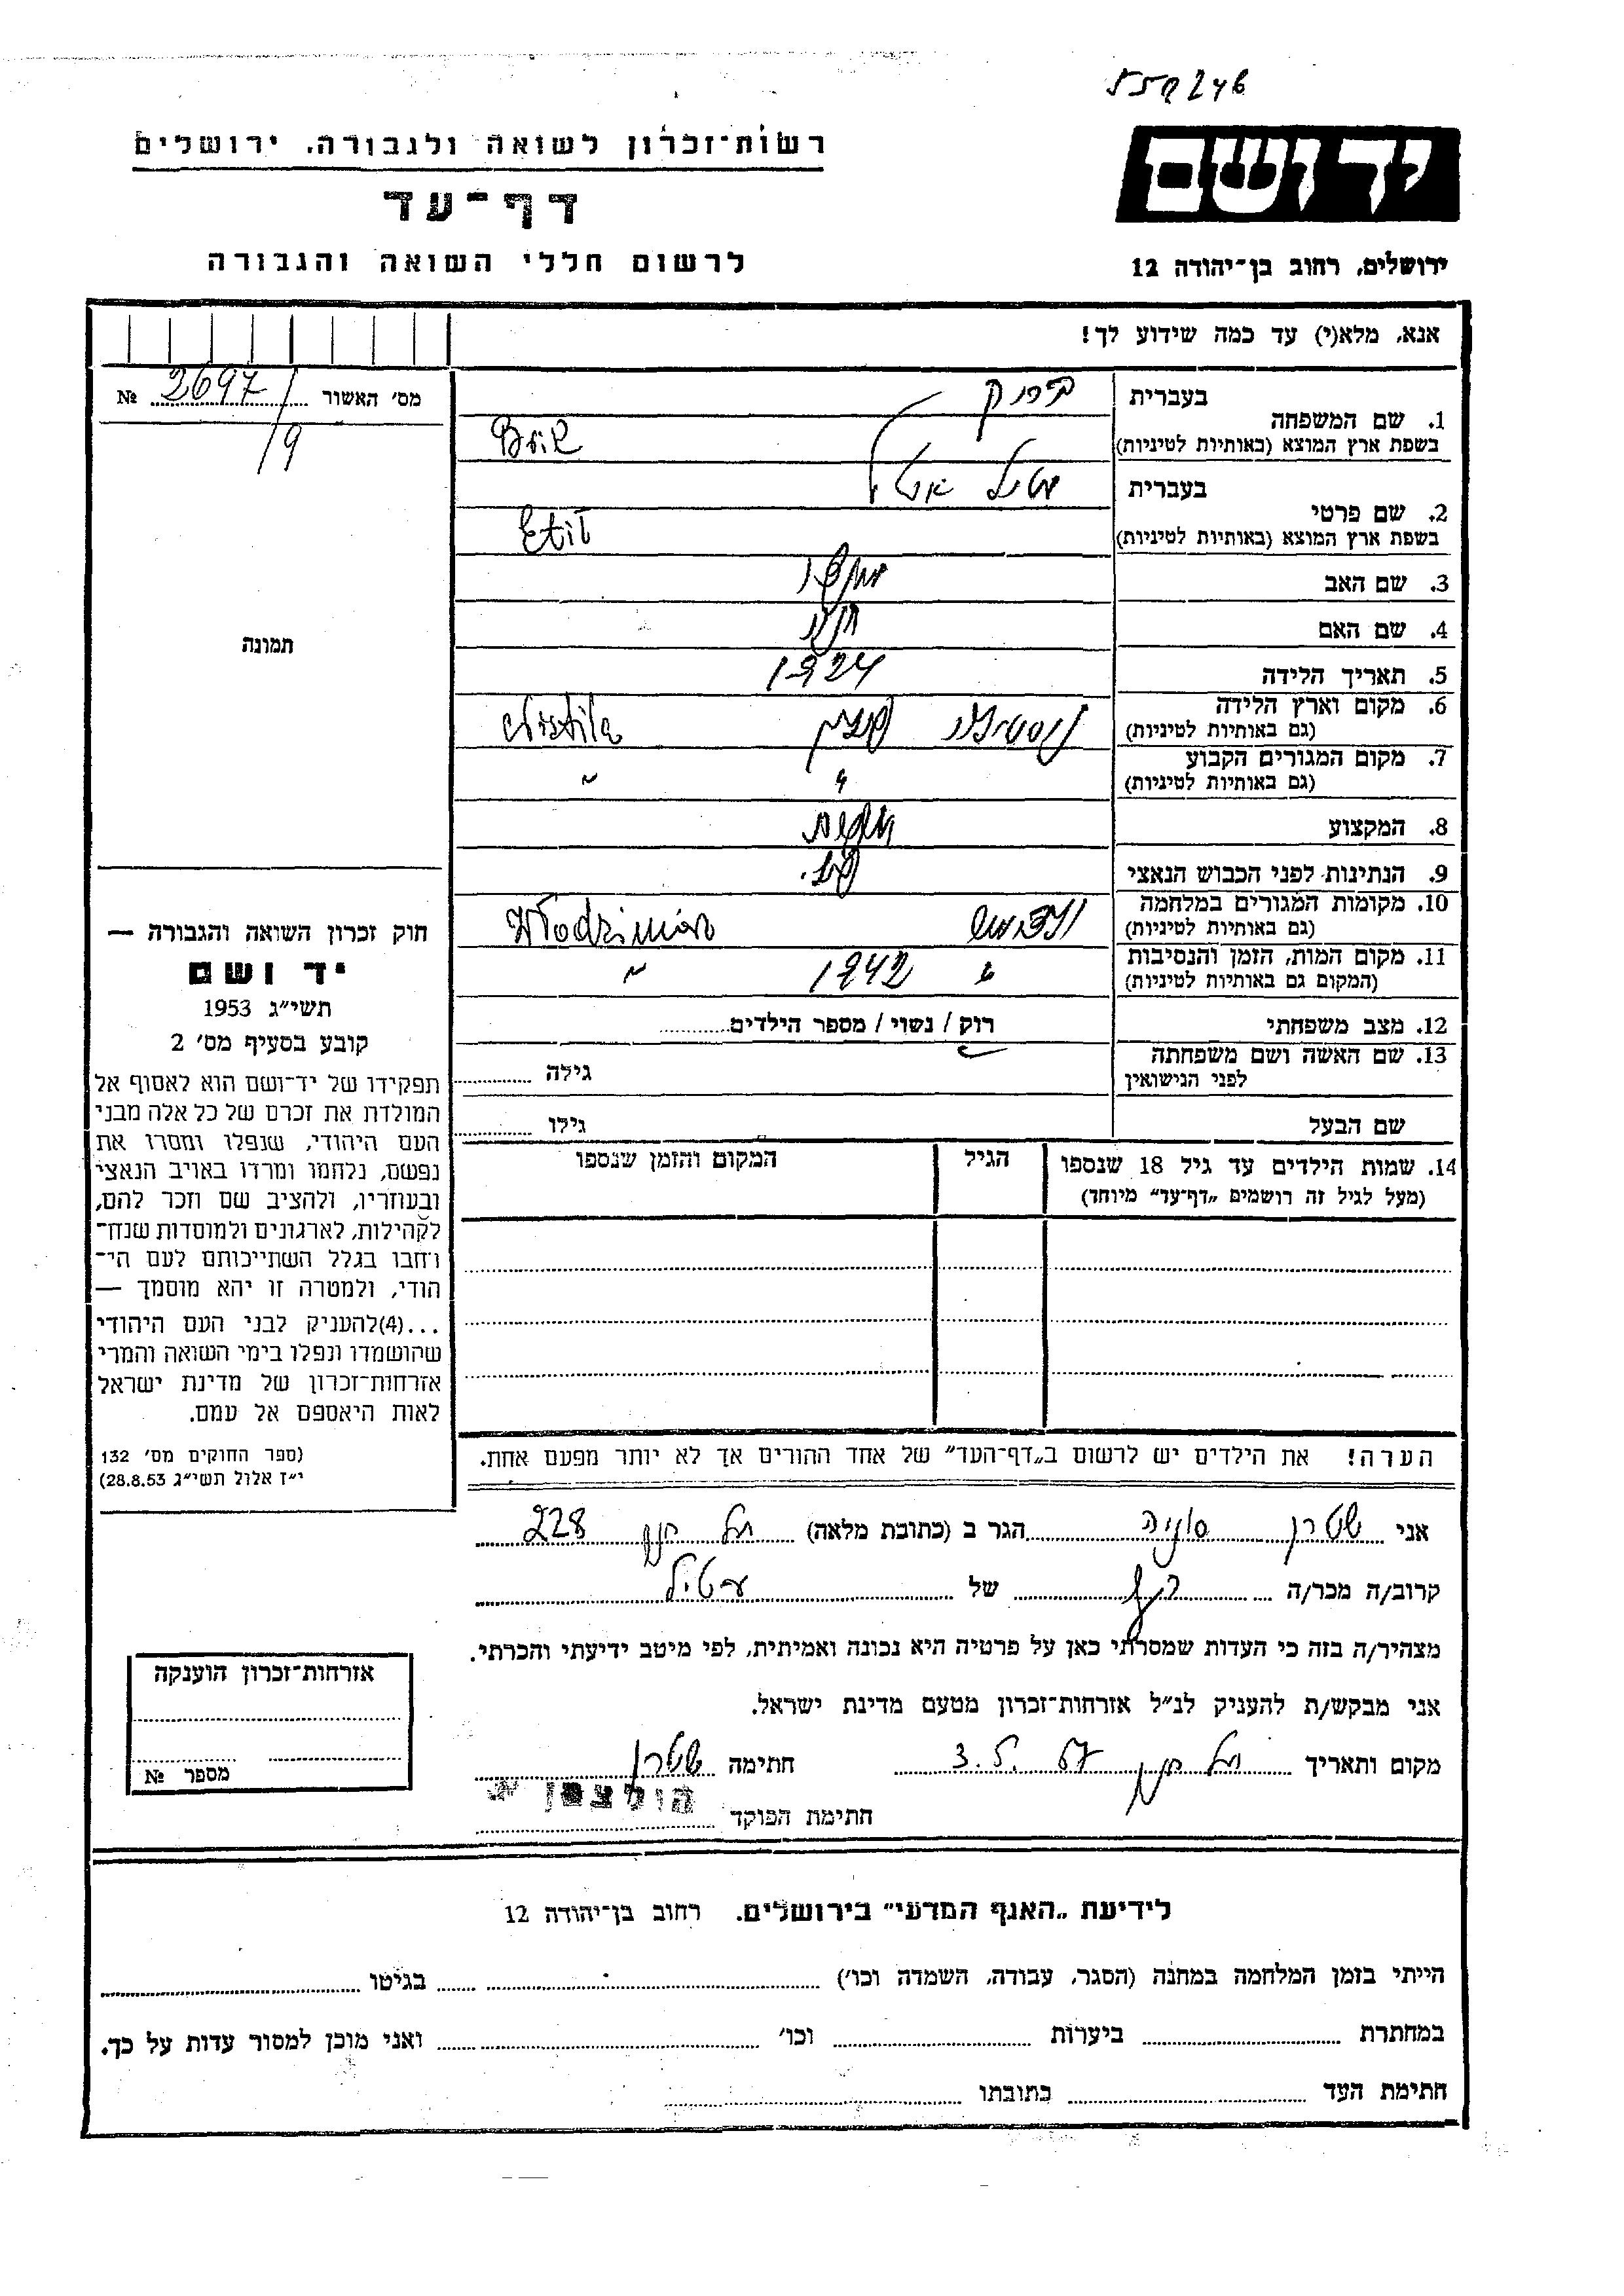 רשות־זכרון לשואה ולגבורה. ירושלים
דף־עד
לרשום חללי השואה והגבורה
יד ושם
ירושלים, רחוב בן־יהודה 12
אנא, מלא(י) עד כמה שידוע לך!
מס׳ האשור № 2697
/9
תמונה
1. שם המשפחה בעברית
בשפת ארץ המוצא (באותיות לטיניות)
2. שם פרטי בעברית
בשפת ארץ המוצא (באותיות לטיניות) Etil
3. שם האב
4. שם האם
5. תאריך הלידה 1924
6. מקום וארץ הלידה
(גם באותיות לטיניות)
7. מקום המגורים הקבוע
(גם באותיות לטיניות)
8. המקצוע
9. הנתינות לפני הכבוש הנאצי
10. מקומות המגורים במלחמה
(גם באותיות לטיניות)
11. מקום המות, הזמן והנסיבות 1942
(המקום גם באותיות לטיניות)
12. מצב משפחתי רוק / נשוי / מספר הילדים
13. שם האשה ושם משפחתה גילה
לפני הנישואין
שם הבעל גילו
14. שמות הילדים עד גיל 18 שנספו הגיל המקום והזמן שנספו
(מעל לגיל זה רושמים „דף־עד" מיוחד)
הערה! את הילדים יש לרשום ב„דף־העד" של אחד ההורים אך לא יותר מפעם אחת.
חוק זכרון השואה והגבורה —
יד ושם
תשי״ג 1953
קובע בסעיף מס׳ 2
תפקידו של יד־ושם הוא לאסוף אל
המולדת את זכרם של כל אלה מבני
העם היהודי, שנפלו ומסרו את
נפשם, נלחמו ומרדו באויב הנאצי
ובעוזריו, ולהציב שם וזכר להם,
לקהילות, לארגונים ולמוסדות שנח־
רחבו בגלל השתייכותם לעם הי־
הודי, ולמטרה זו יהא מוסמך —
...(4)להעניק לבני העם היהודי
שהושמדו ונפלו בימי השואה והמרי
אזרחות־זכרון של מדינת ישראל
לאות היאספם אל עמם.
(ספר החוקים מס׳ 132
י״ז אלול תשי״ג 28.8.53)
אני שטרן סוניה הגר ב (כתובת מלאה) תל 228
קרוב/ה מכר/ה של עטיל
מצהיר/ה בזה כי העדות שמסרתי כאן על פרטיה היא נכונה ואמיתית, לפי מיטב ידיעתי והכרתי.
אני מבקש/ת להעניק לנ״ל אזרחות־זכרון מטעם מדינת ישראל.
מקום ותאריך תל 3.5. חתימה שטרן
חתימת הפוקד הולצמן
אזרחות־זכרון הוענקה
מספר №
לידיעת „האגף המדעי" בירושלים. רחוב בן־יהודה 12
הייתי בזמן המלחמה במחנה (הסגר, עבודה, השמדה וכו׳) בגיטו
במחתרת ביערות וכו׳ ואני מוכן למסור עדות על כך.
חתימת העד כתובתו